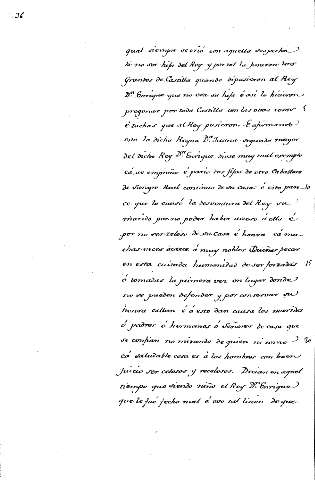 36
qual siempre se crió con aquella sospecha
de no ser hija del Rey y por tal la pusieron los
Grandes de Castilla quando dipusieron al Rey
Dⁿ. Enrique que no era su hija é así lo hicieron
pregonar por toda Castilla con las otras cosas 5
é tachas que al Rey pusieron. E afirmando
con la dicha Reyna Dª. Juana segunda muger
del dicho Rey Dⁿ. Enrique dieron muy mal exemplo
ca se empreñó é parió hijos de otro Caballero
de Sangre Real continuo de su casa é esto pare- 10
ce que lo causó la desventura del Rey su
marido por no poder haber acceso á ella é
por no ser celoso de su casa é honra ca mu-
chas veces acaece á muy nobles Dueñas pecar
en esta cuitada humanidad de ser forzadas 15
ó tomadas la primera vez en lugar donde
no se pueden defender y por conservar su
honra callan é á esto dan causa los maridos
ó padres ó hermanos ó Señores de casa que
se confian no mirando de quien ni como 20
ca saludable cosa es á los hombres con buen
juicio ser celosos y recelosos. Decian en aquel
tiempo que siendo niño el Rey Dⁿ. Enrique
que le fué fecho mal é uso tal de que